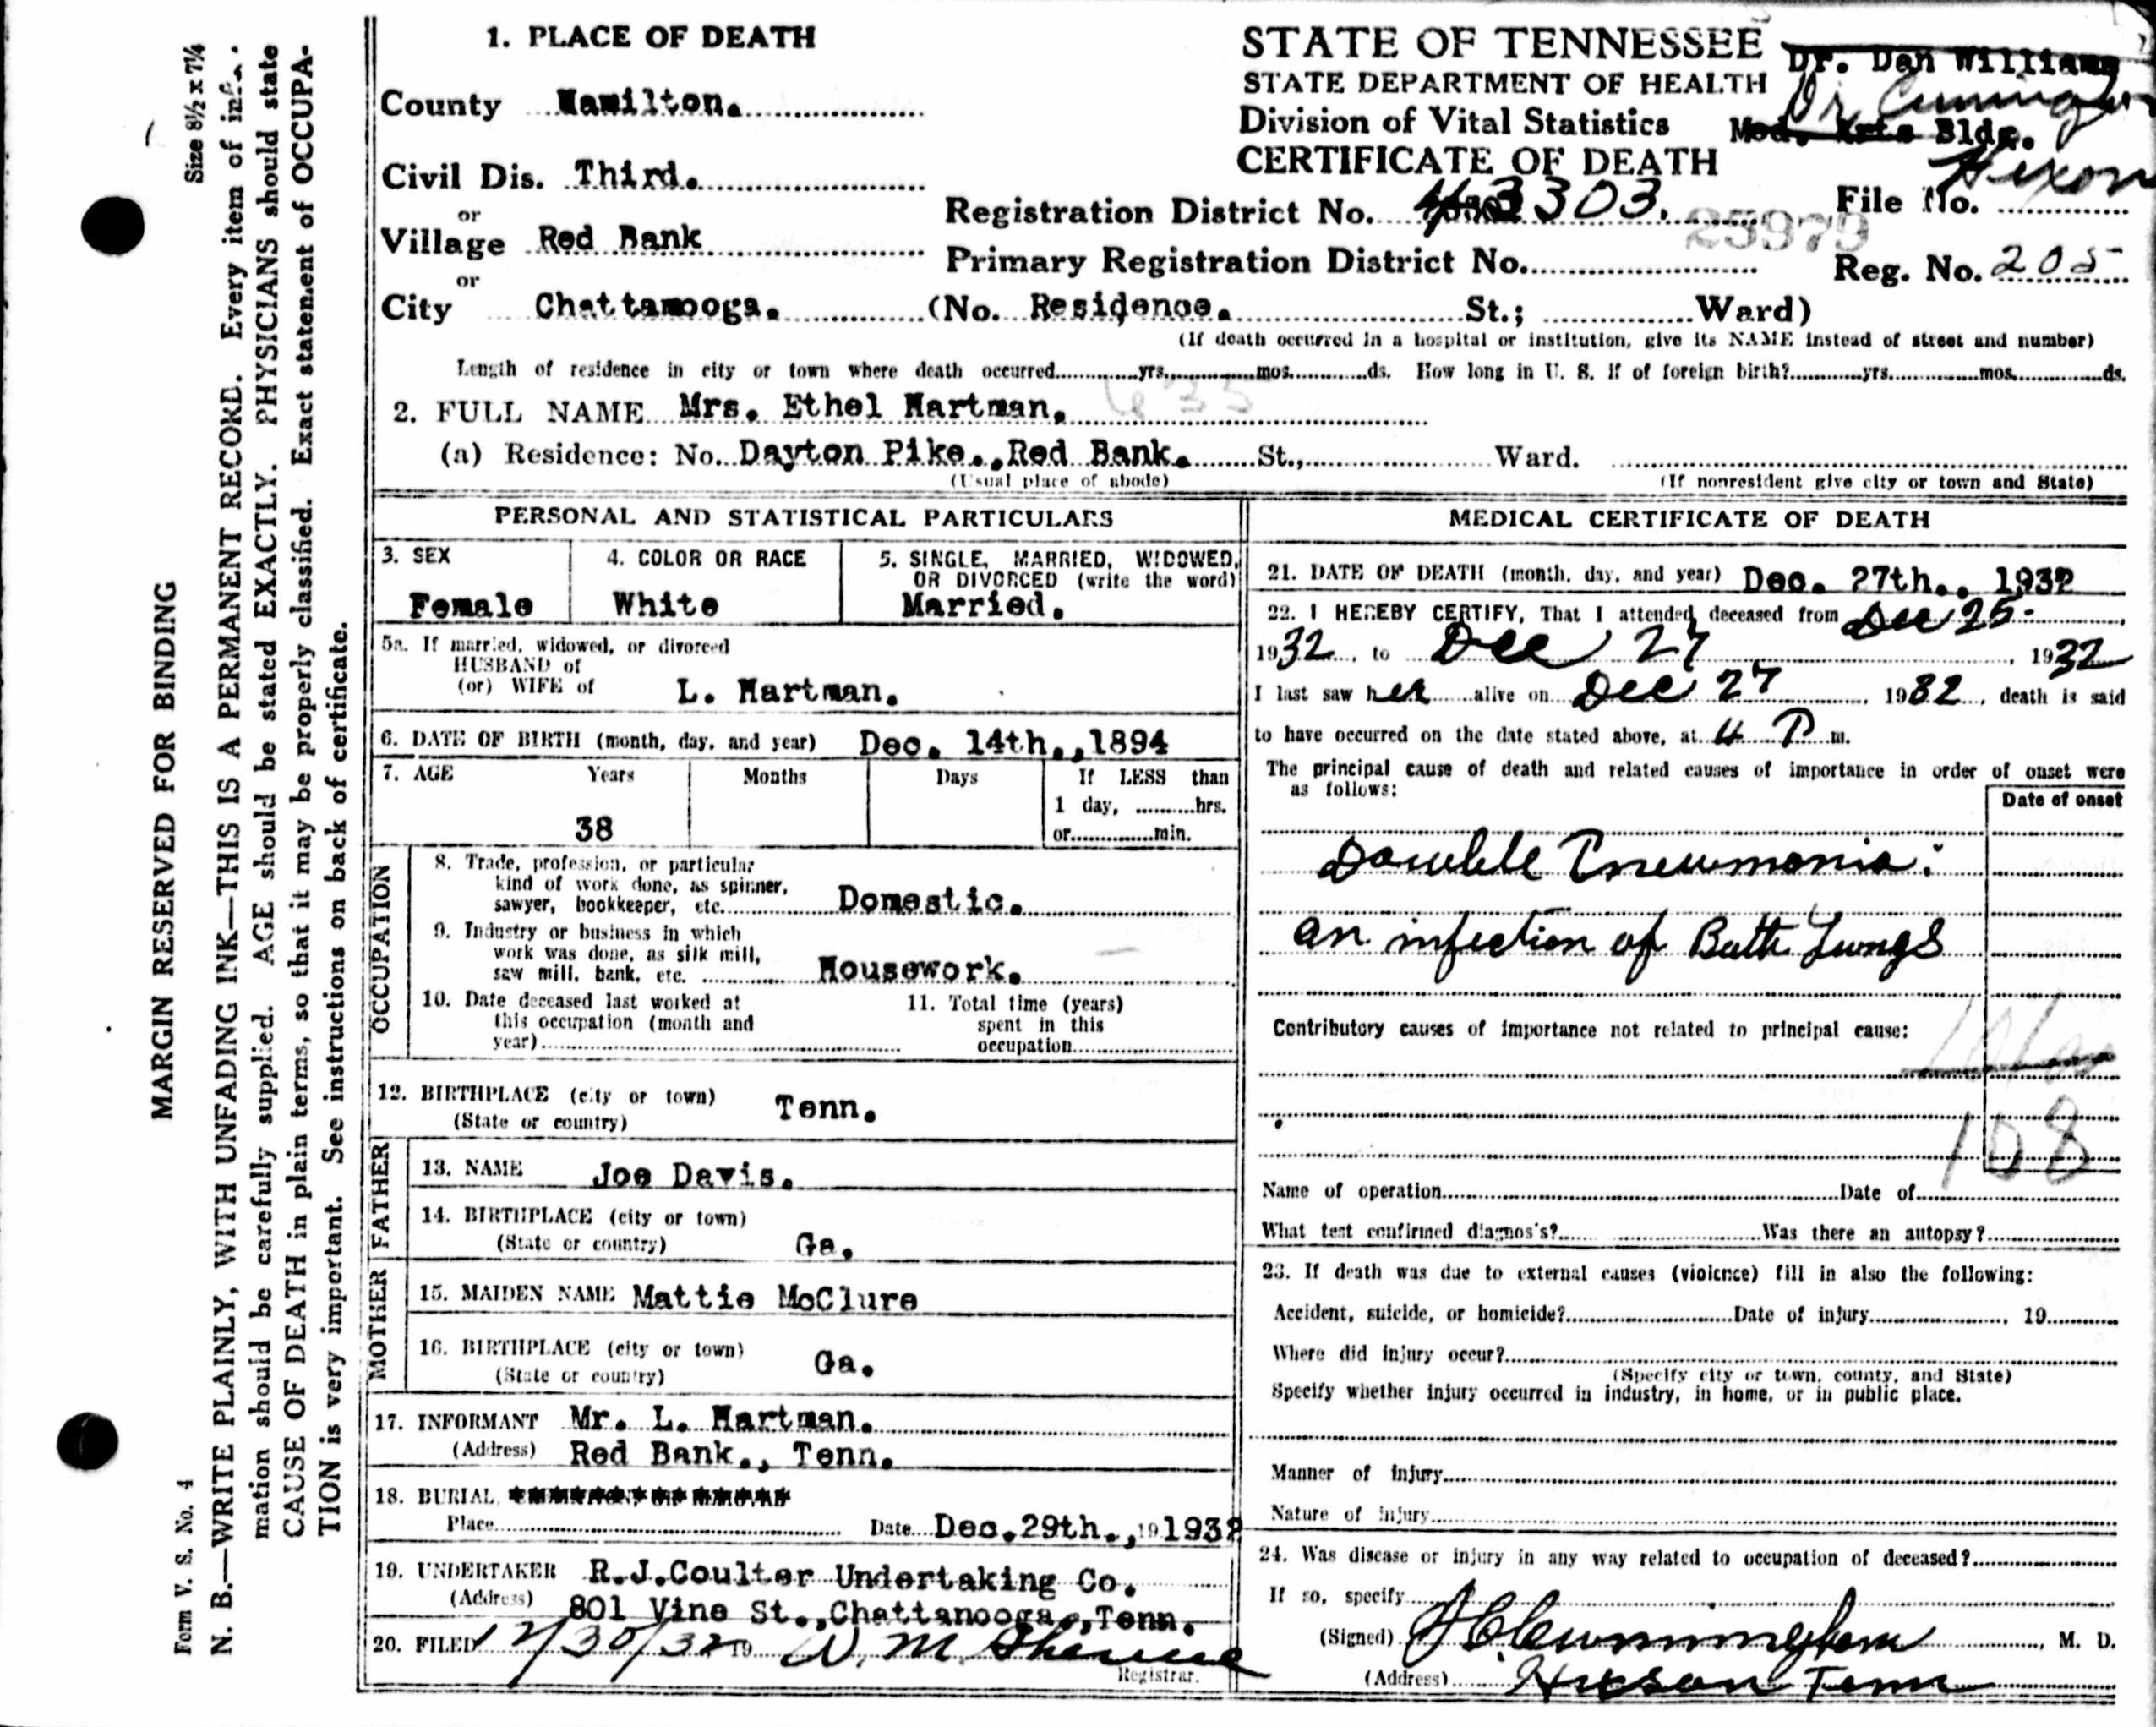 MARGIN RESERVED FOR BINDING
Form V. S. No. 4
Size 8½ x 7¼
N. B.—WRITE PLAINLY, WITH UNFADING INK—THIS IS A PERMANENT RECORD. Every item of infor-
mation should be carefully supplied. AGE should be stated EXACTLY. PHYSICIANS should state
CAUSE OF DEATH in plain terms, so that it may be properly classified. Exact statement of OCCUPA-
TION is very important. See instructions on back of certificate.
1. PLACE OF DEATH
County Hamilton.
Civil Dis. Third.
or
Village Red Bank
or
City Chattanooga. (No. Residence. St.; Ward)
STATE OF TENNESSEE
STATE DEPARTMENT OF HEALTH
Division of Vital Statistics
CERTIFICATE OF DEATH
Dr. Dan Williams
Med. Arts Bldg.
Hixon
Registration District No. 3303.
File No.
25979
Primary Registration District No.
Reg. No. 205
(If death occurred in a hospital or institution, give its NAME instead of street and number)
Length of residence in city or town where death occurred yrs. mos. ds. How long in U. S. if of foreign birth? yrs. mos. ds.
2. FULL NAME Mrs. Ethel Hartman. 635
(a) Residence: No. Dayton Pike.,Red Bank. St., Ward.
(Usual place of abode) (If nonresident give city or town and State)
PERSONAL AND STATISTICAL PARTICULARS
3. SEX
Female
4. COLOR OR RACE
White
5. SINGLE, MARRIED, WIDOWED,
OR DIVORCED (write the word)
Married.
5a. If married, widowed, or divorced
HUSBAND of
(or) WIFE of L. Hartman.
6. DATE OF BIRTH (month, day, and year) Dec. 14th.,1894
7. AGE Years Months Days If LESS than
1 day, hrs.
38 or min.
OCCUPATION
8. Trade, profession, or particular
kind of work done, as spinner,
sawyer, bookkeeper, etc. Domestic.
9. Industry or business in which
work was done, as silk mill,
saw mill, bank, etc. Housework.
10. Date deceased last worked at
this occupation (month and
year)
11. Total time (years)
spent in this
occupation
12. BIRTHPLACE (city or town) Tenn.
(State or country)
FATHER
13. NAME Joe Davis.
14. BIRTHPLACE (city or town)
(State or country) Ga.
MOTHER
15. MAIDEN NAME Mattie McClure
16. BIRTHPLACE (city or town)
(State or country) Ga.
17. INFORMANT Mr. L. Hartman.
(Address) Red Bank., Tenn.
18. BURIAL
Place Date Dec.29th.,19 1932
19. UNDERTAKER R.J.Coulter Undertaking Co.
(Address) 801 Vine St.,Chattanooga.,Tenn.
20. FILED 12/30/32 19
Registrar.
MEDICAL CERTIFICATE OF DEATH
21. DATE OF DEATH (month, day, and year) Dec. 27th., 1932
22. I HEREBY CERTIFY, That I attended deceased from Dec 25
1932, to Dec 27, 1932
I last saw her alive on Dec 27, 1932, death is said
to have occurred on the date stated above, at 4 P m.
The principal cause of death and related causes of importance in order of onset were
as follows:
Date of onset
Double Pneumonia:
an infection of Both Lungs
Contributory causes of importance not related to principal cause:
108
Name of operation Date of
What test confirmed diagnosis? Was there an autopsy?
23. If death was due to external causes (violence) fill in also the following:
Accident, suicide, or homicide? Date of injury, 19
Where did injury occur?
(Specify city or town, county, and State)
Specify whether injury occurred in industry, in home, or in public place.
Manner of injury
Nature of injury
24. Was disease or injury in any way related to occupation of deceased?
If so, specify
(Signed) Cunningham, M. D.
(Address) Hixson Tenn